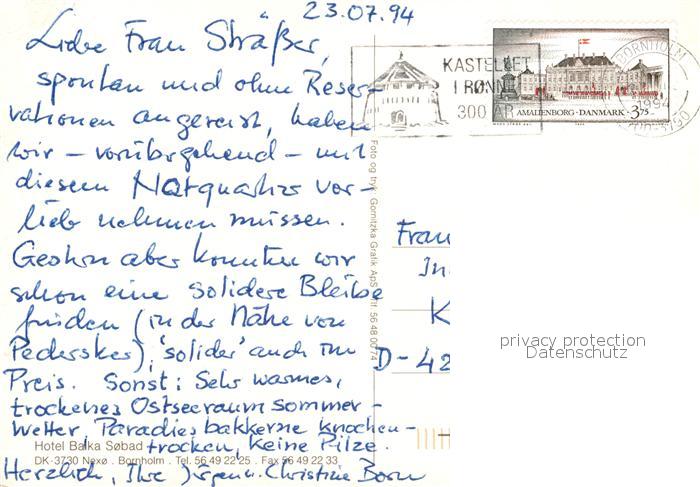 23.07.94
Liebe Frau Straßer,
spontan und ohne Reser-
vationen angereist, haben
wir – vorübergehend – mit
diesem Notquartier vor-
lieb nehmen müssen.
Gestern aber konnten wir
schon eine solidere Bleibe
finden (in der Nähe von
Pedersker), 'solider' auch im
Preis. Sonst: Sehr warmes,
trockenes Ostseeraum Sommer-
wetter, Paradiesbakkerne knochen-
trocken, keine Pilze.
Herzlich, Ihre Jürgen u. Christine Born
Hotel Balka Søbad
DK-3730 Nexø . Bornholm . Tel. 56 49 22 25 . Fax 56 49 22 33
Foto og tryk: Gornitzka Grafik ApS
56 48 00 74
KASTELLET
I RØNNE
300 ÅR
AMALIENBORG · DANMARK · 3.75
BORNHOLM
1994
Frau
In
K
D-42
privacy protection
Datenschutz